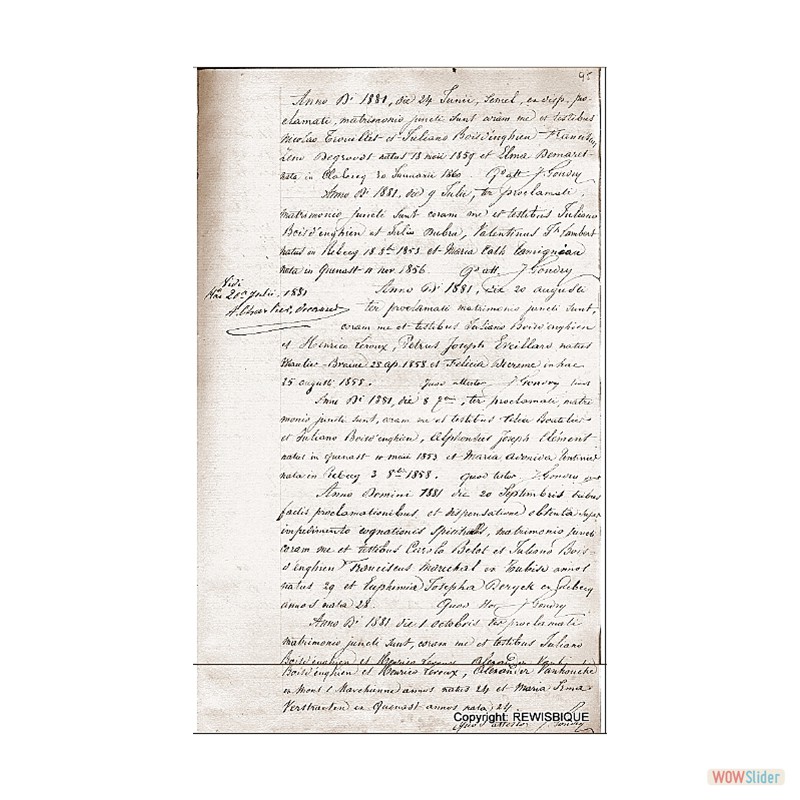 95
Anno Di 1881, die 24 Junii, semel, ex disp. pro-
clamati, matrimonio juncti sunt coram me et testibus
Nicolao Trouillet et Juliano Boisd'enghien Francisc,
Zeno Degroodt natus 13 maii 1859 et Elma Demaret
nata in Clabecq 30 Januarii 1860. J. Gondry
Anno Di 1881, die 9 Julii, ter proclamati
matrimonio juncti sunt coram me et testibus Juliano
Boisd'enghien et Julio Dubra, Valentinus Fs Lambert
natus in Rebecq 18 8bris 1853 et Maria Cath Lamigneau
nata in Quenast 11 nov 1856. Q att. J Gondry
Vidi
hac 20a Julii 1881
Anno Di 1881, die 20 augusti
ter proclamati matrimonio juncti sunt,
coram me et testibus Juliano Boisd'enghien
et Henrico Leroux, Petrus Joseph Eveillard natus
Wautier-Braine 28 ap. 1858 et Felicia in hac
25 augusti 1858. Quod attestor J Gondry
Anno Di 1881, die 8 7bris, ter proclamati, matri
monio juncti sunt, coram me et testibus Boutelier
et Juliano Boisd'enghien, Alphonsus Joseph Clement
natus in Quenast 10 maii 1853 et Maria
nata in Rebecq 3 8bris 1858. Quod testor J Gondry
Anno Domini 1881 die 20 Septembris tribus
factis proclamationibus et dispensatione obtenta super
impedimento cognationis spiritualis, matrimonio juncti
coram me et testibus Carolo Belot et Juliano Bois-
d'enghien Franciscus Marechal ex Haubise annos
natus 29 et Euphemia Josepha Deryck ex Rebecq
annos nata 28. Quod J Gondry
Anno Di 1881 die 1 octobris ter proclamati
matrimonio juncti sunt, coram me et testibus Juliano
Boisd'enghien et Henrico Leroux, Alexander
Boisd'enghien et Henrico Leroux, Alexander
ex Mont s Marchienne annos natus 24 et Maria Irma
Verstraeten ex Quenast annos nata 24
Quod attestor J Gondry
Copyright: REWISBIQUE
WOWSlider